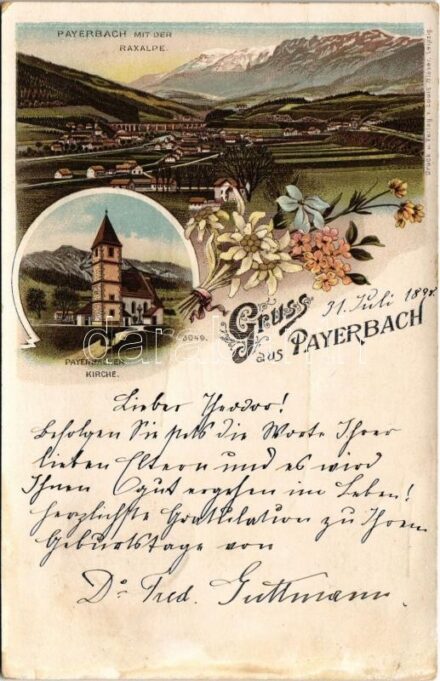 PAYERBACH MIT DER
RAXALPE.
PAYERBACHER
KIRCHE.
3049.
Gruss
aus PAYERBACH
31. Juli 189
Lieber Theodor!
Befolgen Sie stets die Worte Ihrer
lieben Eltern und es wird
Ihnen gut ergehen im Leben!
Herzlichste Gratulation zu Ihrem
Geburtstage von
Dr. Fred. Guttmann